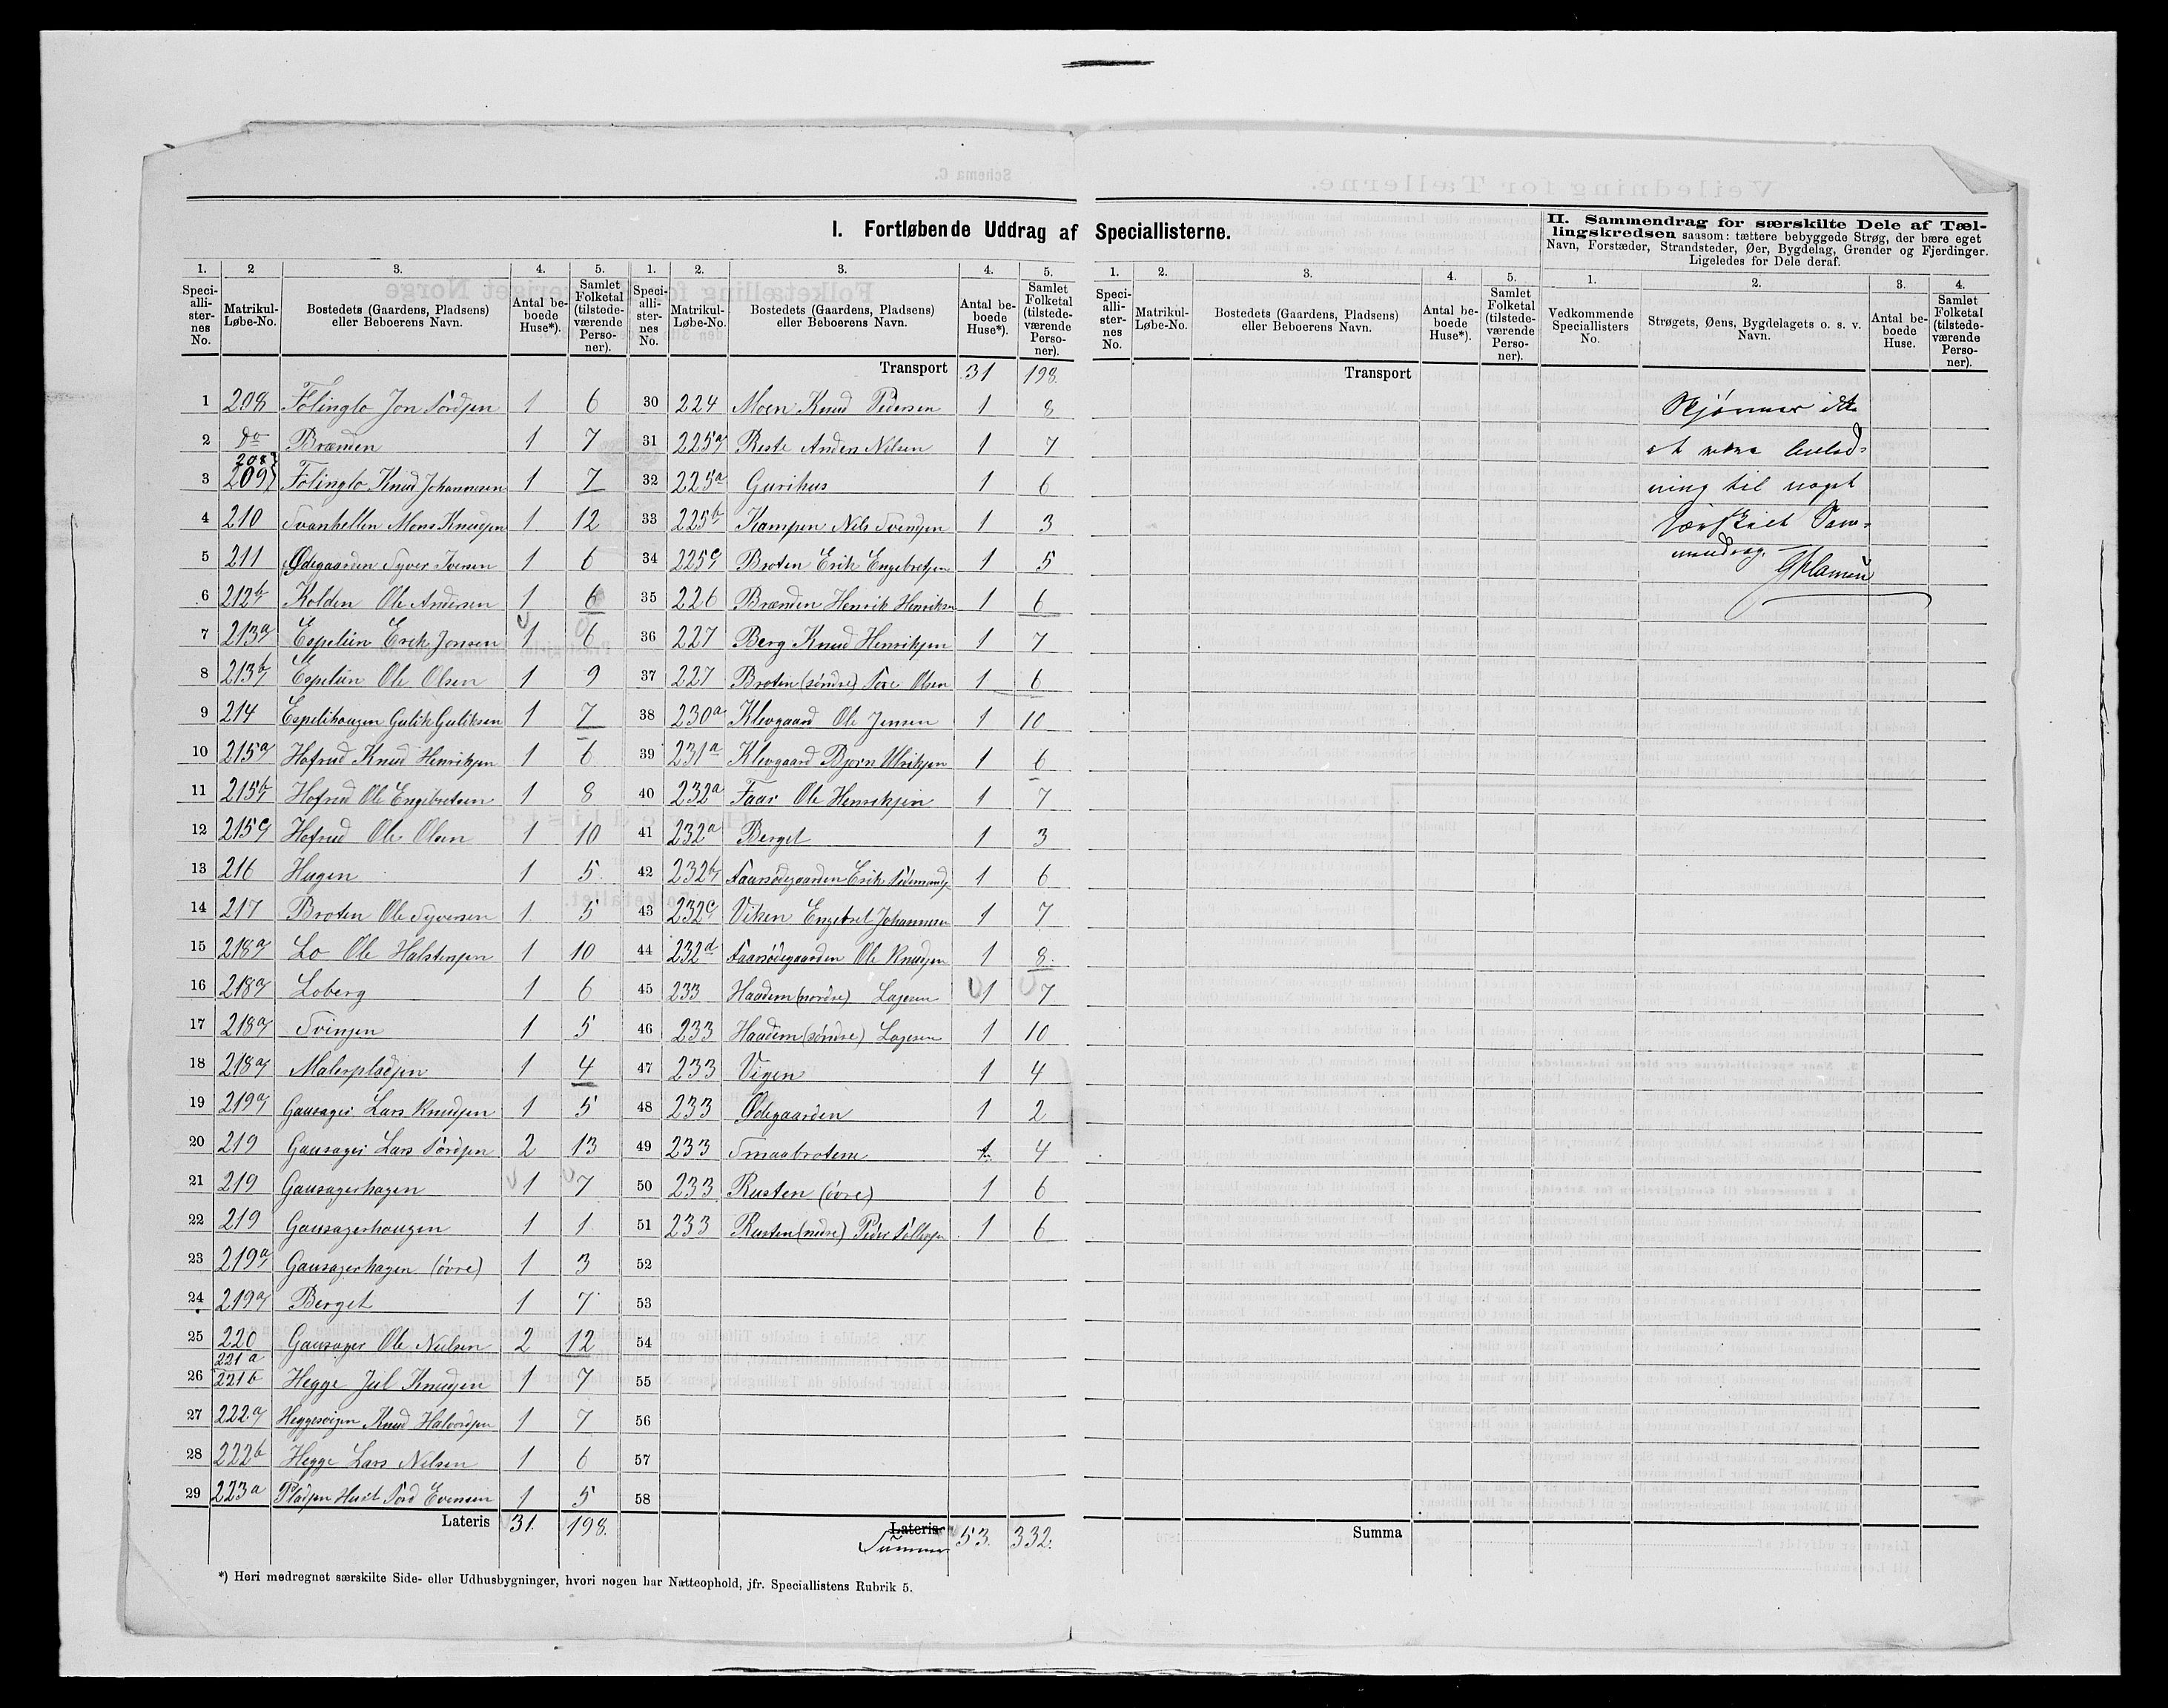 I. Fortløbende Uddrag af Speciallisterne.
II. Sammendrag for særskilte Dele af Tæl-
lingskredsen saasom: tættere bebyggede Strøg, der bære eget
Navn, Forstæder, Strandsteder, Øer, Bygdelag, Grender og Fjerdinger.
Ligeledes for Dele deraf.
1. 2 3. 4. 5. 1. 2. 3. 4. 5. 1. 2. 3. 4. 5. 1. 2. 3. 4.
Speci-alli-ster-nes No. Matrikul-Løbe-No. Bostedets (Gaardens, Pladsens) eller Beboerens Navn. Antal be-boede Huse*). Samlet Folketal (tilstede-værende Perso-ner).
Speci-alli-ster-nes No. Matrikul-Løbe-No. Bostedets (Gaardens, Pladsens) eller Beboerens Navn. Antal be-boede Huse*). Samlet Folketal (tilstede-værende Perso-ner).
Speci-alli-ster-nes No. Matrikul-Løbe-No. Bostedets (Gaardens, Pladsens) eller Beboerens Navn. Antal be-boede Huse*). Samlet Folketal (tilstede-værende Perso-ner).
Vedkommende Speciallisters No. Strøgets, Øens, Bygdelagets o. s. v. Navn. Antal be-boede Huse. Samlet Folketal (tilstede-værende Perso-ner).
1 208 Folinglo Jon Tordsen 1 6
2 Do Brænden 1 7
3 208 209 Folinglo Knud Johannesen 1 7
4 210 Svanhellen Mons Knudsen 1 12
5 211 Ødegaarden Syver Iversen 1 6
6 212b Kolden Ole Andersen 1 6
7 213a Espelien Erik Jonsen 1 6
8 213b Espelien Ole Olsen 1 9
9 214 Espelihaugen Gulik Guliksen 1 7
10 215a Hofrud Knud Henriksen 1 6
11 215b Hofrud Ole Engebretsen 1 8
12 215c Hofrud Ole Olsen 1 10
13 216 Hagen 1 5
14 217 Broten Ole Syversen 1 5
15 218a Lo Ole Halstensen 1 10
16 218a Loberg 1 6
17 218a Svingen 1 5
18 218a Malerpladsen 1 4
19 219a Gausager Lars Knudsen 1 5
20 219 Gausager Lars Tordsen 2 13
21 219 Gausagerhagen 1 7
22 219 Gausagerhaugen 1 1
23 219a Gausagerhagen (övre) 1 3
24 219a Berget 1 7
25 220 Gausager Ole Nielsen 2 12
26 221a 221b Hegge Jul Knudsen 1 7
27 222a Heggesvigen Knud Halvordsen 1 7
28 222b Hegge Lars Nilsen 1 6
29 223a Pladsen Huset Tord Evensen 1 5
Lateris 31. 198.
Transport 31 198.
30 224 Moen Knud Pedersen 1 8
31 225a Reste Anders Nilsen 1 7
32 225a Gurihus 1 6
33 225b Kampen Nils Svendsen 1 3
34 225c Broten Erik Engebretsen 1 5
35 226 Brænden Henrik Henriksen 1 6
36 227 Berg Knud Henriksen 1 7
37 227 Broten (söndre) Tore Olsen 1 6
38 230a Klevgaard Ole Jensen 1 10
39 231a Klevgaard Bjørn Ulriksen 1 6
40 232a Faar Ole Henriksen 1 7
41 232a Berget 1 3
42 232b Faarsödegaarden Erik 1 6
43 232c Viken Engebret Johannesen 1 7
44 232d Faarsödegaarden Ole Knudsen 1 8
45 233 Haadem (nordre) Lagesen 1 7
46 233 Haadem (söndre) Lagesen 1 10
47 233 Vigen 1 4
48 233 Ødegaarden 1 2
49 233 Smaabrotene 1 4
50 233 Rusten (övre) 1 6
51 233 Rusten (nedre) Peder 1 6
52
53
54
55
56
57
58
Lateris
Summa 53. 332.
Transport
Summa
Skjønner ikke
at være
ning til noget
særskilt Sam-
mendrag.
*) Heri medregnet særskilte Side- eller Udhusbygninger, hvori nogen har Natteophold, jfr. Speciallistens Rubrik 5.